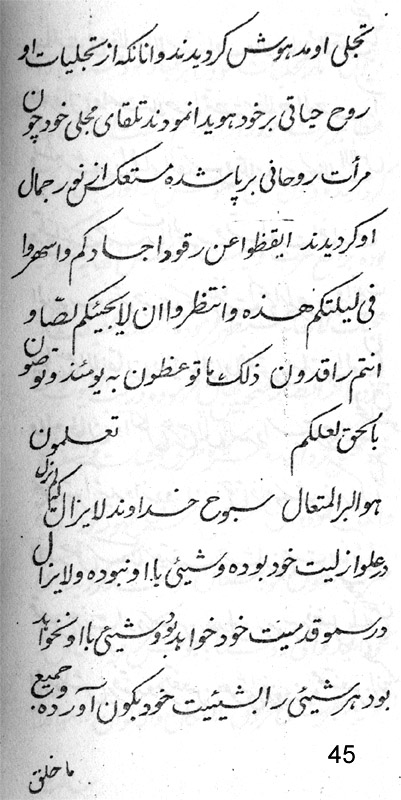 تجلی او مدهوش کردیدند و انانکه از تجلیات او
روح حیاتی بر خود هویدا نمودند تلقای مجلی خود چون
مرأت روحانی بر پا شده مستعکس از نور جمال
او کردیدند ایقظوا عن رقود اجسادکم و اسهروا
فی لیلتکم هذه و انتظروا ان لا یجیئکم لصّا و
انتم راقدون ذلک ما توعظون به یومئذ و توصون
بالحق لعلکم تعلمون
هو البر المتعال سبوح خداوند لایزال که لم یزل
در علو ازلیت خود بوده و شیئی با او نبوده و لایزال
در سمو قدمیت خود خواهد بود و شیئی با او نخواهد
بود هر شیئی را بشیئیت خود بکون آورده و جمیع
ما خلق
45